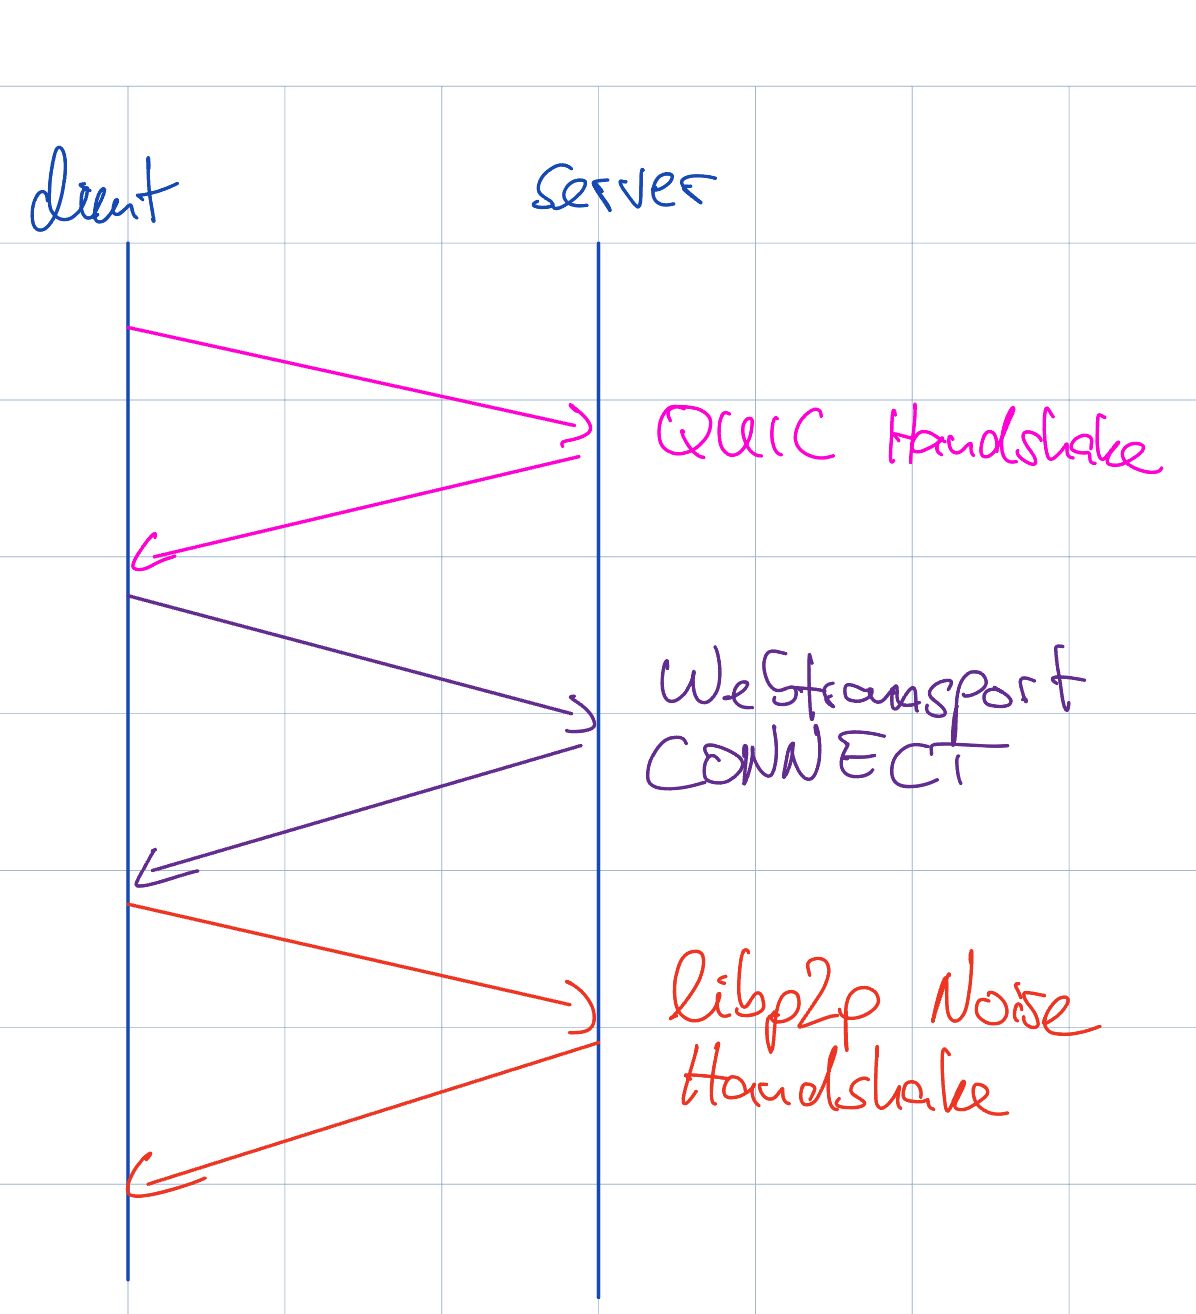 client
server
QUIC Handshake
WebTransport
CONNECT
libp2p Noise
Handshake